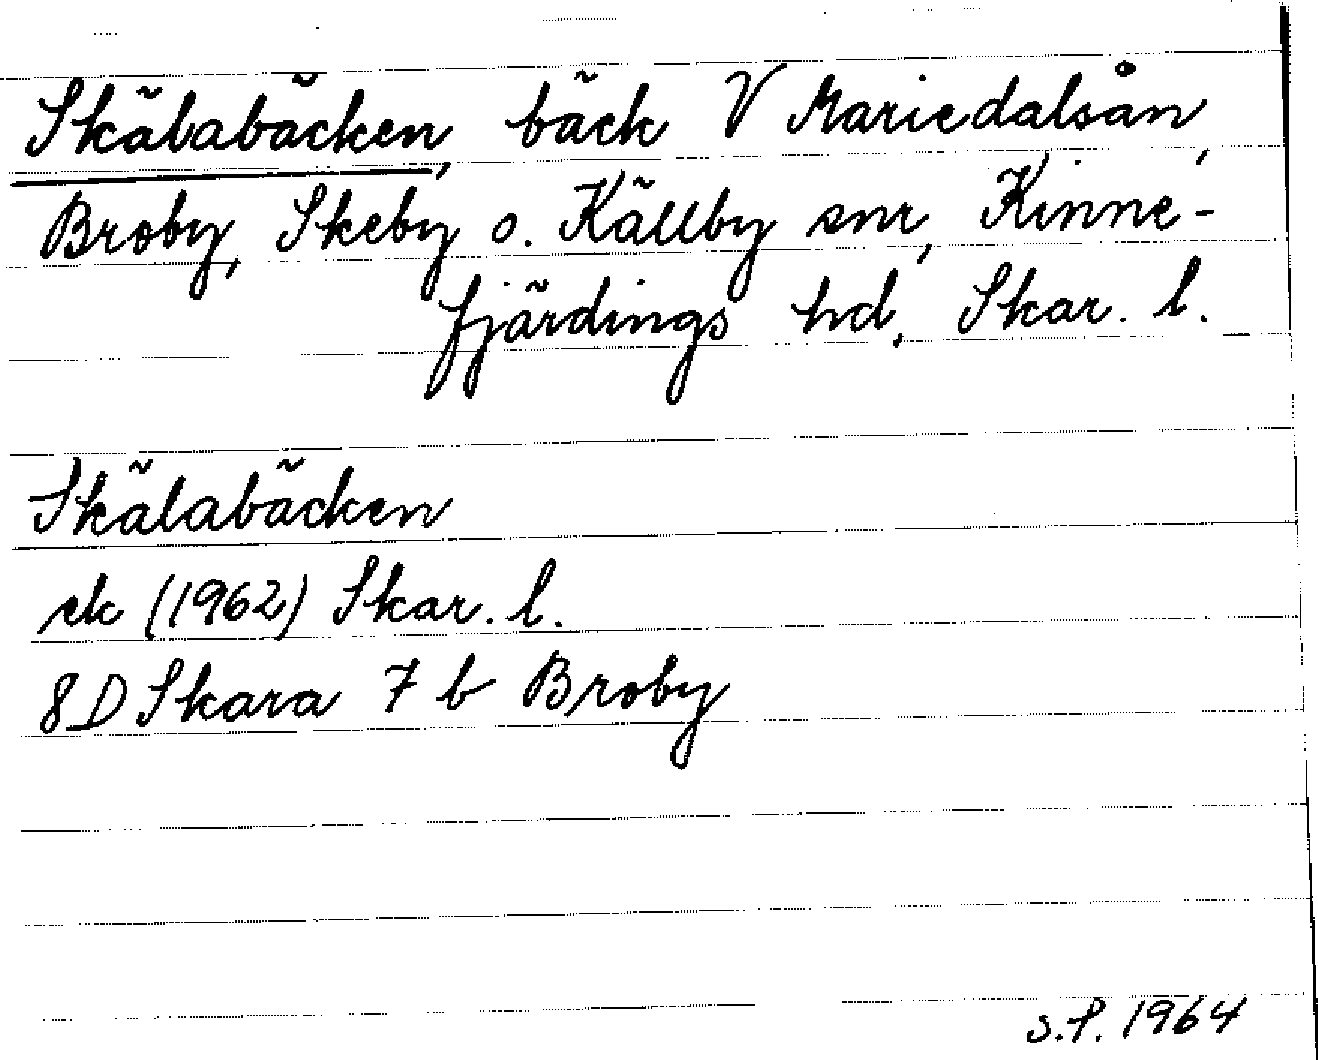 Skälabäcken, bäck V Mariedalsån,
Broby, Skeby o. Källby snr, Kinne-
fjärdings hd, Skar. l.
Skälabäcken
ek (1962) Skar. l.
8D Skara 7 b Broby
S.P. 1964